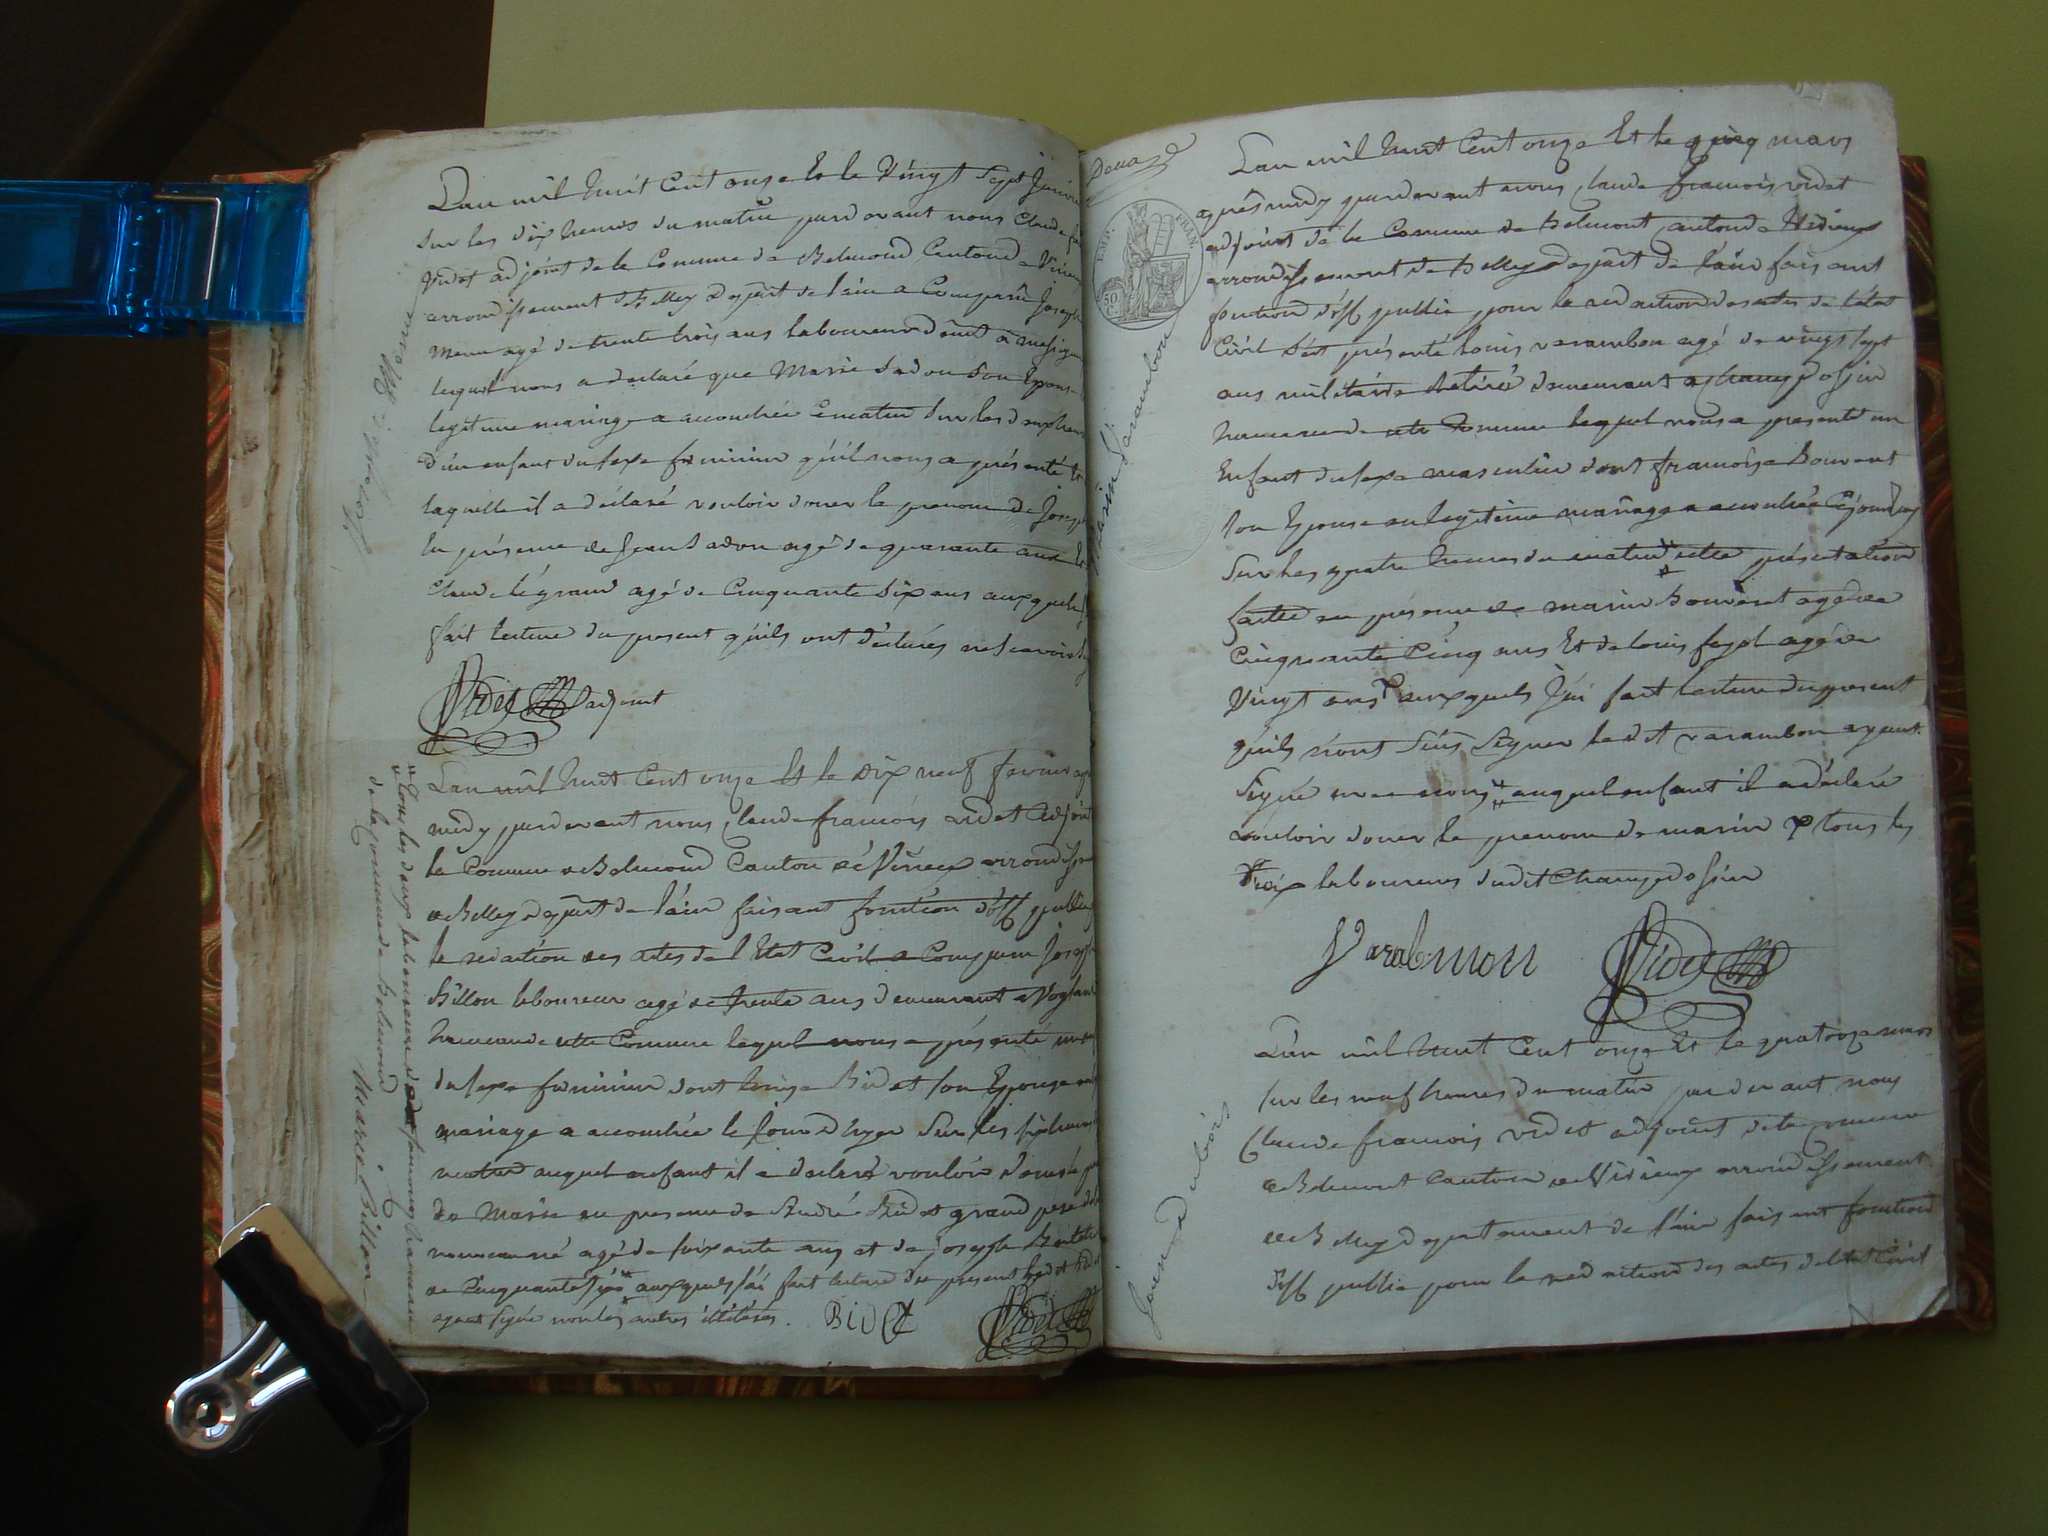 L'an mil huit Cent onze Et le Vingt Sept Janvier
Sur les dix heures du matin pardevant nous Claude
Videt adjoint de la Commune de Belmond Canton de Virieu
arrondissement de Belley depart de l'ain a Comparu Joseph
agé de trente trois ans laboureur
lequel nous a declaré que Marie Sadou Son Epouse
legitime mariage a accouchée Cematin Sur les dix heures
d'un enfant du sexe feminin qu'il nous a présenté Et
laquelle il a déclaré vouloir doner le prenom de
En présence de Jean Sadou agé de quarante ans Et
Claude légrand agé de Cinquante Six ans auxquels
fait lecture du present qu'ils ont déclarés ne Scavoir
Videt adjoint
L'an mil huit Cent onze Et le dix neuf fevrier
midy pardevant nous Claude francois Videt Adjoint
la Commune de Belmond Canton de Virieux
de Belley depart de l'ain faisant fonction d'off public
la redaction des actes de l'Etat Civil a Comparu Joseph
Billon laboureur agé de trente ans demeurant a
hameau de cette Commune lequel nous a présenté
du sexe feminin dont Bidet son Epouse
mariage a accouchée le Jour d'hyer Sur les
auquel enfant il a declaré vouloir doner le
de Marie en presence de André Bidet grand pere
agé de soixante ans et de Joseph
de Cinquante auxquels J'ai fait lecture du present ledit
ayant Signé non les autres illitérés.
BIDEt
Videt
Tous les deux laboureurs
de la Commune de Belmond
Marie Billon
Douze
EMP. FRAN.
50
C.
Marin Varambon
L'an mil huit Cent onze Et le quinq mars
après midy pardevant nous Claude francois videt
adjoint de la Comune de Belmont canton de Virieux
arrondissement de Belley depart de l'ain faisant
fonction d'off public pour la redaction des actes de l'état
Civil S'est présenté Louis varambon agé de vingt Sept
ans militaire Retiré demeurant a Champdossin
hameau de cette Commune lequel nous a presenté un
Enfant du sexe masculin dont francoise Bouvent
Son Epouse en legitime mariage a accouchée Cejourdhuy
Sur les quatre heures du matin cette présentation
faitte en présence de marin Bouvent agé de
Cinquante Cinq ans Et de louis agé de
Vingt ans auxquels J'ai fait lecture du present
qu'ils n'ont Sçus Signer ledit varambon ayant
Signé avec nous auquel enfant il a déclaré
vouloir doner le prenom de marin tous les
laboureurs dudit Champdossin
Varabmon
Videt
L'an mil huit Cent onze Et le quatorze mars
sur les neuf heures du matin pardevant nous
Claude francois videt adjoint de la commune
de Belmont Canton de Virieux arrondissement
de Belley departement de l'ain faisant fonction
d'off public pour la redaction des actes de l'Etat Civil